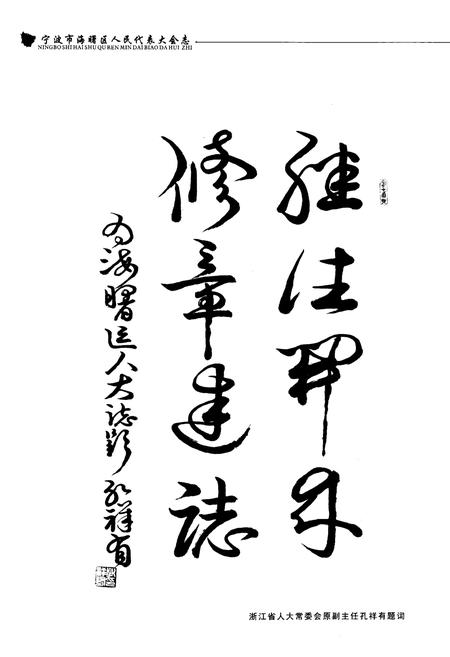 宁波市海曙区人民代表大会志
NINGBO SHI HAI SHU QU REN MIN DAI BIAO DA HUI ZHI
继往开来
修章建誌
为海曙区人大志题 孔祥有
浙江省人大常委会原副主任孔祥有题词